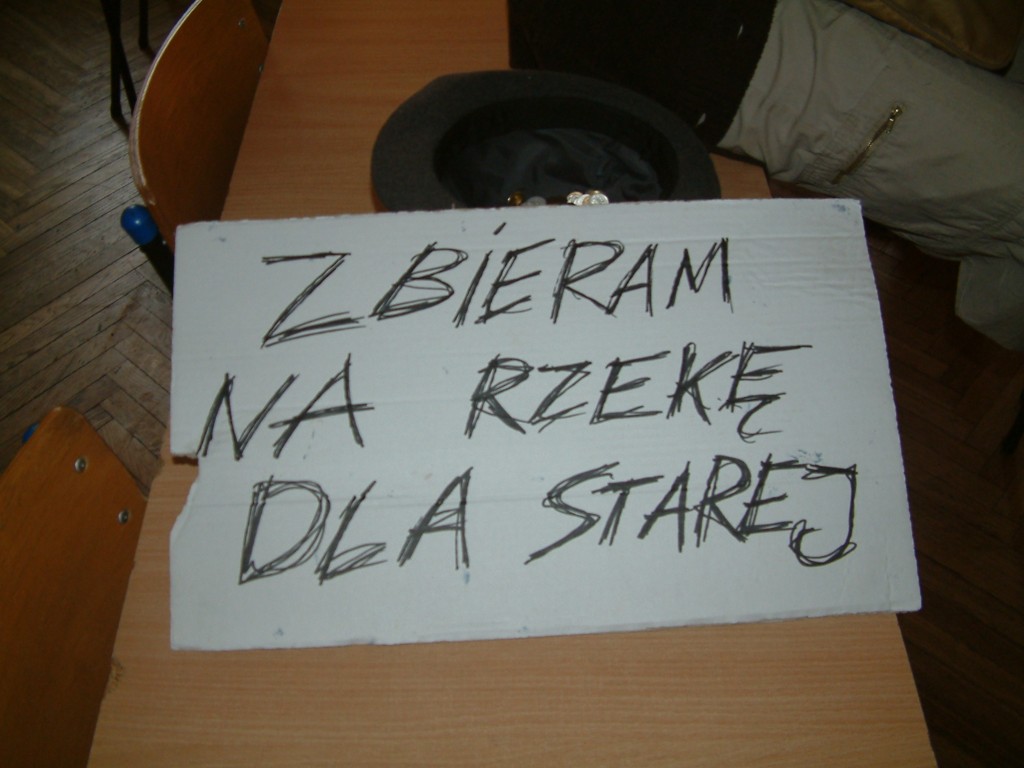 ZBIERAM
NA RZEKĘ
DLA STAREJ